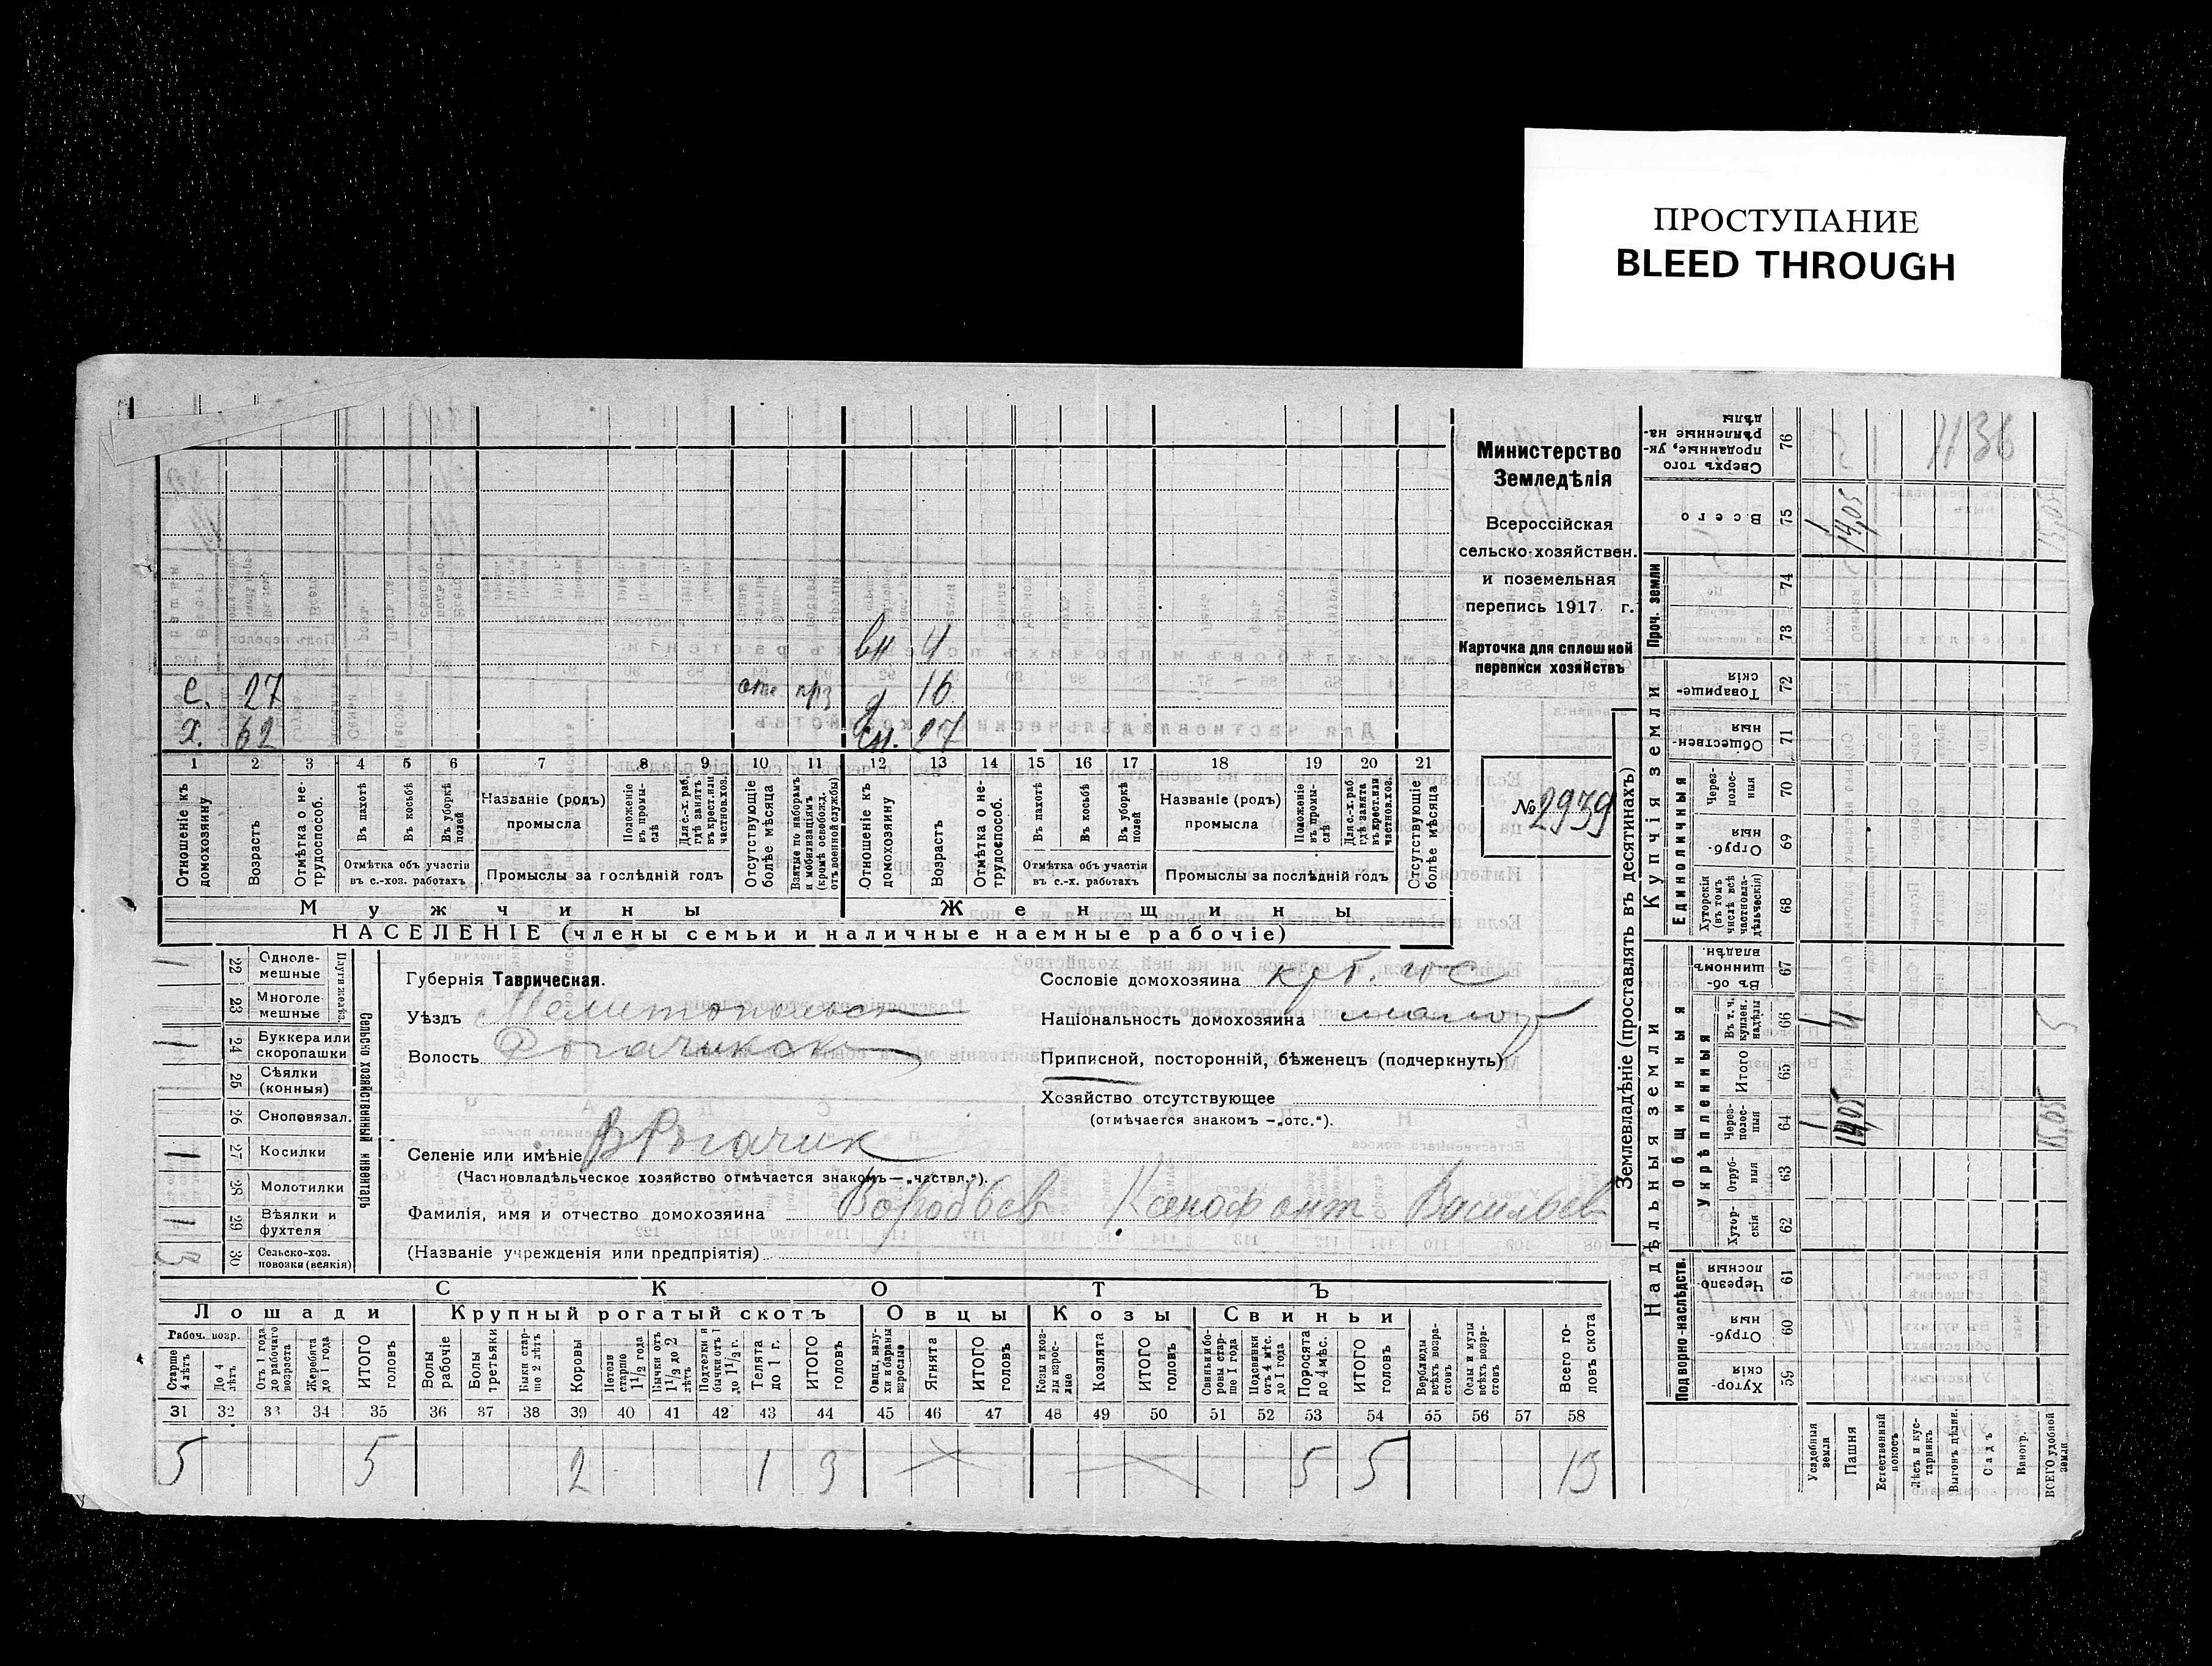 ПРОСТУПАНИЕ
BLEED THROUGH
Министерство
Земледѣлія
Всероссійская
сельско-хозяйствен.
и поземельная
перепись 1917 г.
Карточка для сплошной
переписи хозяйствъ
№ 2939
вн 4
с. 27 отс прз д 16
х. 62 сн. 27
1 2 3 4 5 6 7 8 9 10 11 12 13 14 15 16 17 18 19 20 21
Отношеніе къ домохозяину
Возрастъ
Отмѣтка о не-трудоспособ.
Въ пахотѣ
Въ косьбѣ
Въ уборкѣ полей
Отмѣтка объ участіи
въ с.-хоз. работахъ
Названіе (родъ)
промысла
Положеніе въ промы-слѣ
Для с.-х. раб. гдѣ занятъ въ крест. или частнов. хоз.
Промыслы за послѣдній годъ
Отсутствующіе болѣе мѣсяца
Взятые по наборамъ и мобилизаціямъ (кромѣ освобожд. отъ военной службы)
Отношеніе къ домохозяину
Возрастъ
Отмѣтка о не-трудоспособ.
Въ пахотѣ
Въ косьбѣ
Въ уборкѣ полей
Отмѣтка объ участіи
въ с.-х. работахъ
Названіе (родъ)
промысла
Положеніе въ промы-слѣ
Для с.-х. раб. гдѣ занята въ крест. или частнов. хоз.
Промыслы за послѣдній годъ
Отсутствующіе болѣе мѣсяца
Мужчины Женщины
НАСЕЛЕНІЕ (члены семьи и наличные наемные рабочіе)
Сельско хозяйственный инвентарь
Плуги желѣз.
1 22 Однолемешные
23 Многолемешные
1 24 Буккера или скоропашки
25 Сѣялки (конныя)
26 Сноповязал.
1 27 Косилки
28 Молотилки
1 29 Вѣялки и фухтеля
3 30 Сельско-хоз. повозки (всякія)
Губернія Таврическая.
Уѣздъ Мелитопольск
Волость Рогачикск
Селеніе или имѣніе В Рогачик
(Частновладѣльческое хозяйство отмѣчается знакомъ — „частвл.“).
Фамилія, имя и отчество домохозяина Воробьев Ксенофонт Васильев
(Названіе учрежденія или предпріятія)
Сословіе домохозяина
Національность домохозяина малор
Приписной, посторонній, бѣженецъ (подчеркнуть)
Хозяйство отсутствующее
(отмѣчается знакомъ —„отс.“).
СКОТЪ
Лошади Крупный рогатый скотъ Овцы Козы Свиньи
Рабоч. возр.
Старше 4 лѣтъ
До 4 лѣтъ
Отъ 1 года до рабочаго возраста
Жеребята до 1 года
ИТОГО головъ
Волы рабочіе
Волы третьяки
Быки старше 2 лѣтъ
Коровы
Нетели старше 1 1/2 года
Бычки отъ 1 1/2 до 2 лѣтъ
Подтелки и бычки отъ 1 до 1 1/2 г.
Телята до 1 г.
ИТОГО головъ
Овцы, валухи и бараны взрослые
Ягнята
ИТОГО головъ
Козы и козлы взрослые
Козлята
ИТОГО головъ
Свиньи и боровы старше 1 года
Подсвинки отъ 4 мѣс. до 1 года
Поросята до 4 мѣс.
ИТОГО головъ
Верблюды всѣхъ возрастовъ
Ослы и мулы всѣхъ возрастовъ
Всего головъ скота
31 32 33 34 35 36 37 38 39 40 41 42 43 44 45 46 47 48 49 50 51 52 53 54 55 56 57 58
5 5 2 1 3 5 5 13
Землевладѣніе (проставлять въ десятинахъ)
Надѣльныя земли
Купчія земли
Проч. земли
Общинныя
Единоличныя
Укрѣпленныя
Подворно-наслѣдств.
Сверхъ того проданные, укрѣпленные надѣлы 76
1136
Всего 75 1 14,05
74
73
Товарищескія 72
Общественныя 71
Черезполосныя 70
Отрубныя 69
Хуторскія (въ томъ числѣ всѣ частновладѣльческія) 68
Въ общинномъ владѣн. 67
Въ т. ч. куплен. надѣлы 66 4
Итого 65
Черезполосныя 64 1 14,05 15,05
Отрубныя 63
Хуторскія 62
Черезполосныя 61
Отрубныя 60
Хуторскія 59
Усадебныя земли
Пашня
Естественный покосъ
Лѣсъ и кустарникъ
Садъ
Виногр.
ВСЕГО удобной земли